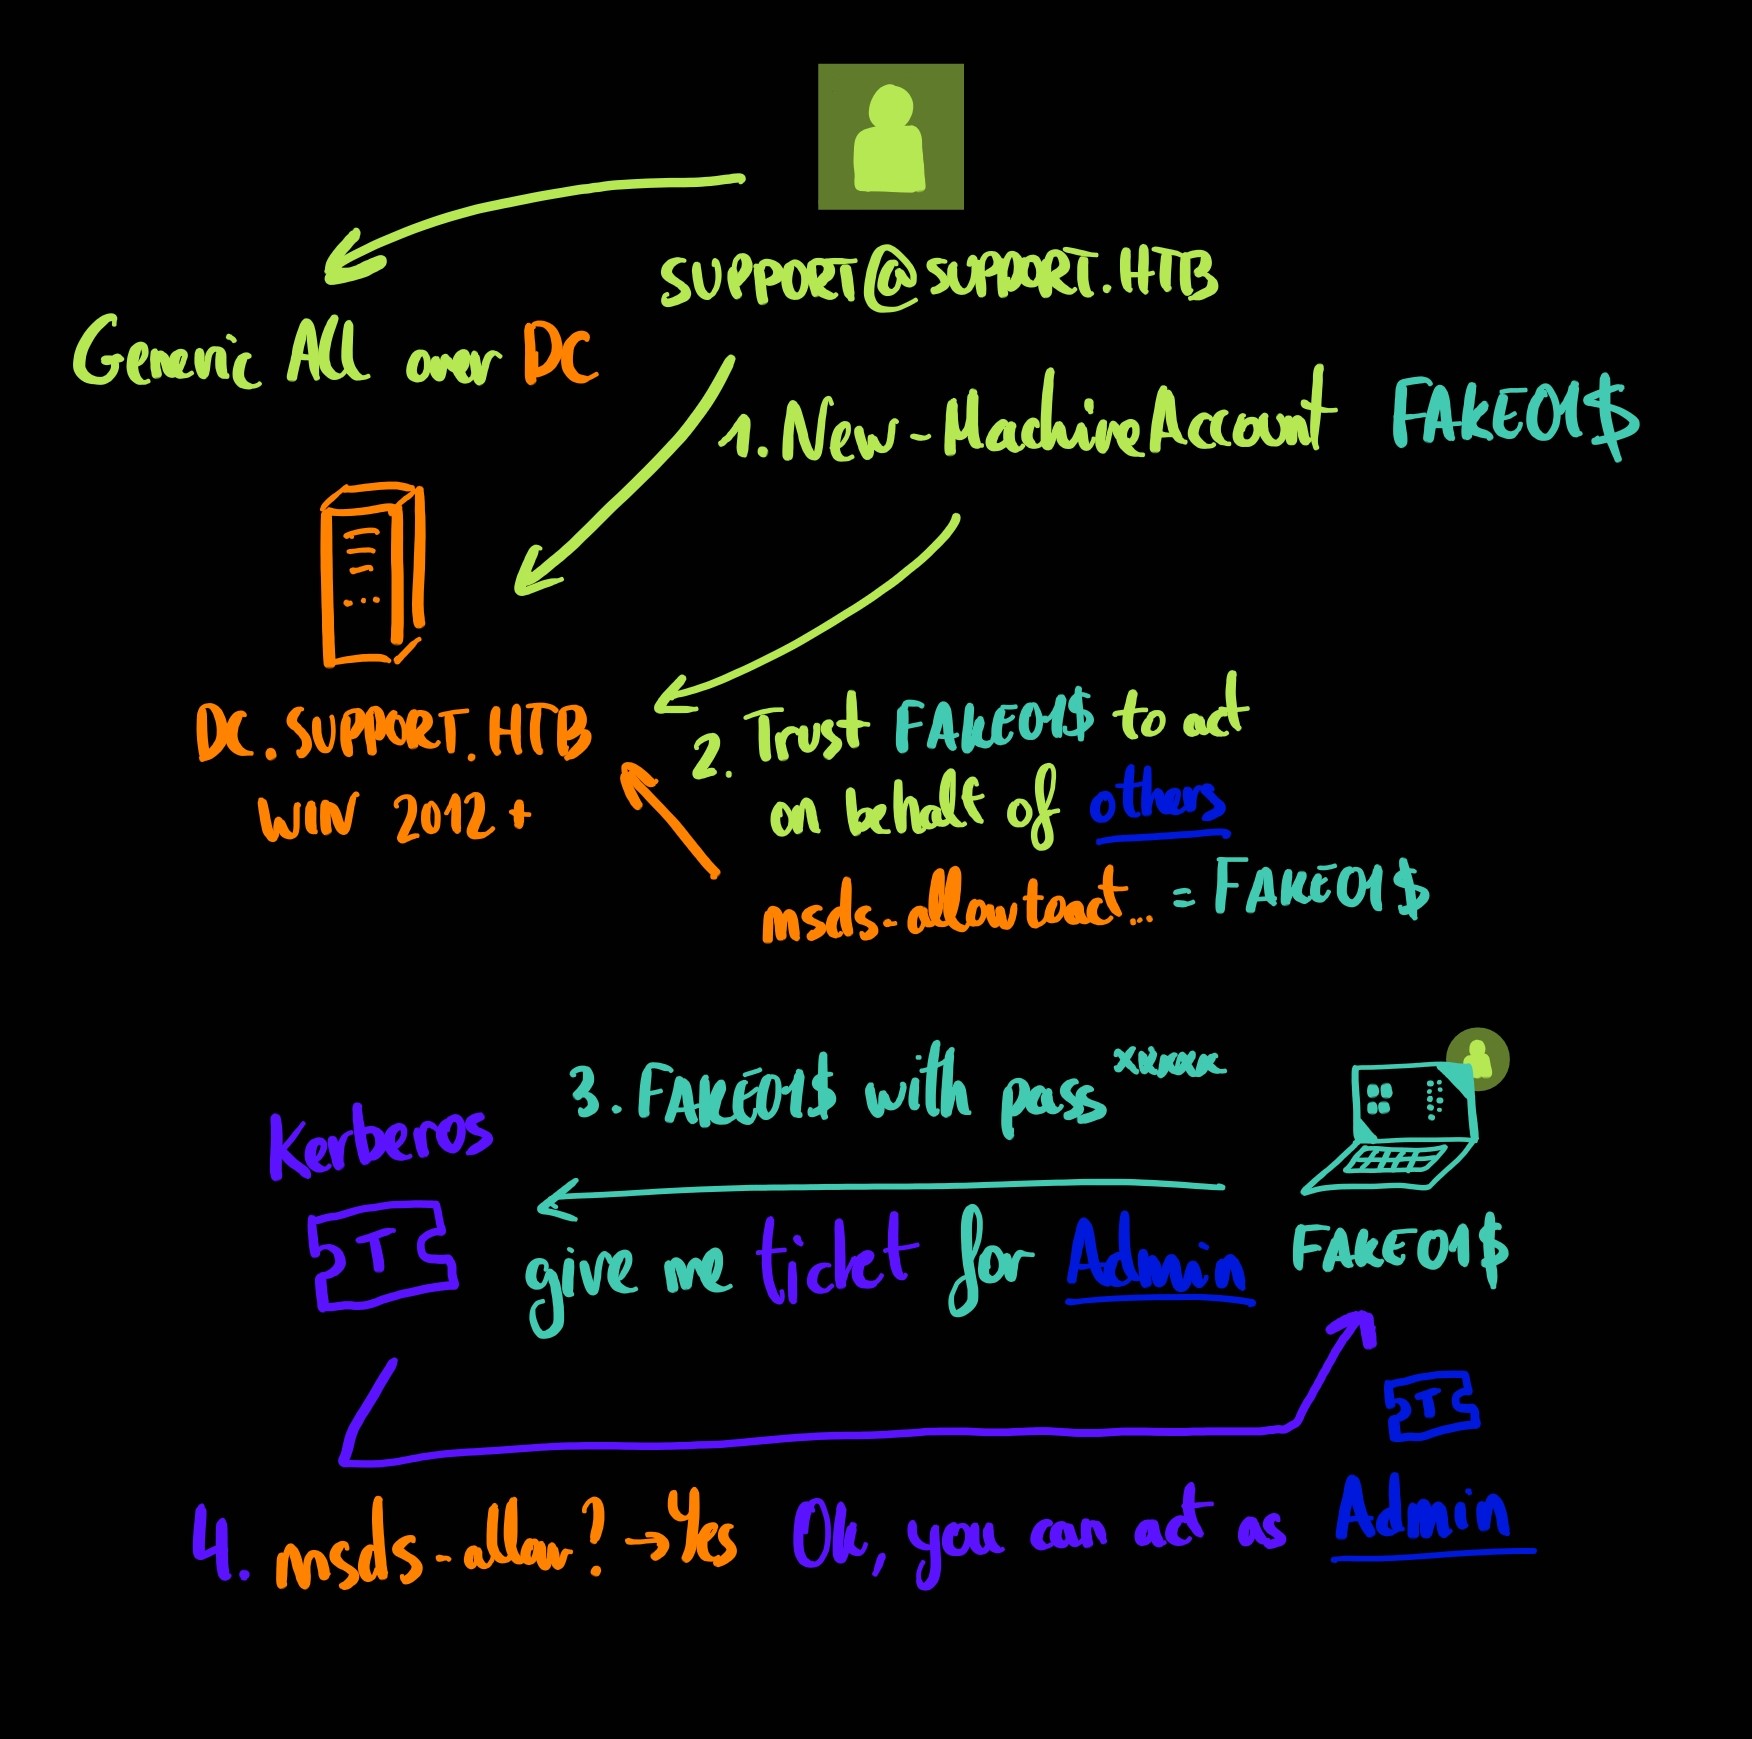 SUPPORT@SUPPORT.HTB
Generic All over DC
1. New-MachineAccount FAKE01$
DC.SUPPORT.HTB
WIN 2012+
2. Trust FAKE01$ to act
on behalf of others
msds-allowtoact... = FAKE01$
3. FAKE01$ with pass xxxxx
Kerberos
T
give me ticket for Admin
FAKE01$
T
4. msds-allow? → Yes Ok, you can act as Admin